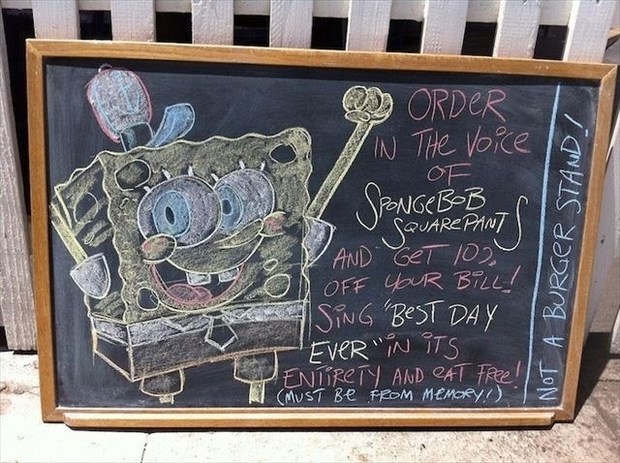 ORDER
IN THE VOICE
OF
SPONGEBOB
SQUAREPANTS
AND GET 10%
OFF YOUR BILL!
SING "BEST DAY
EVER" IN ITS
ENTIRETY AND EAT FREE!
(MUST BE FROM MEMORY!)
NOT A BURGER STAND!